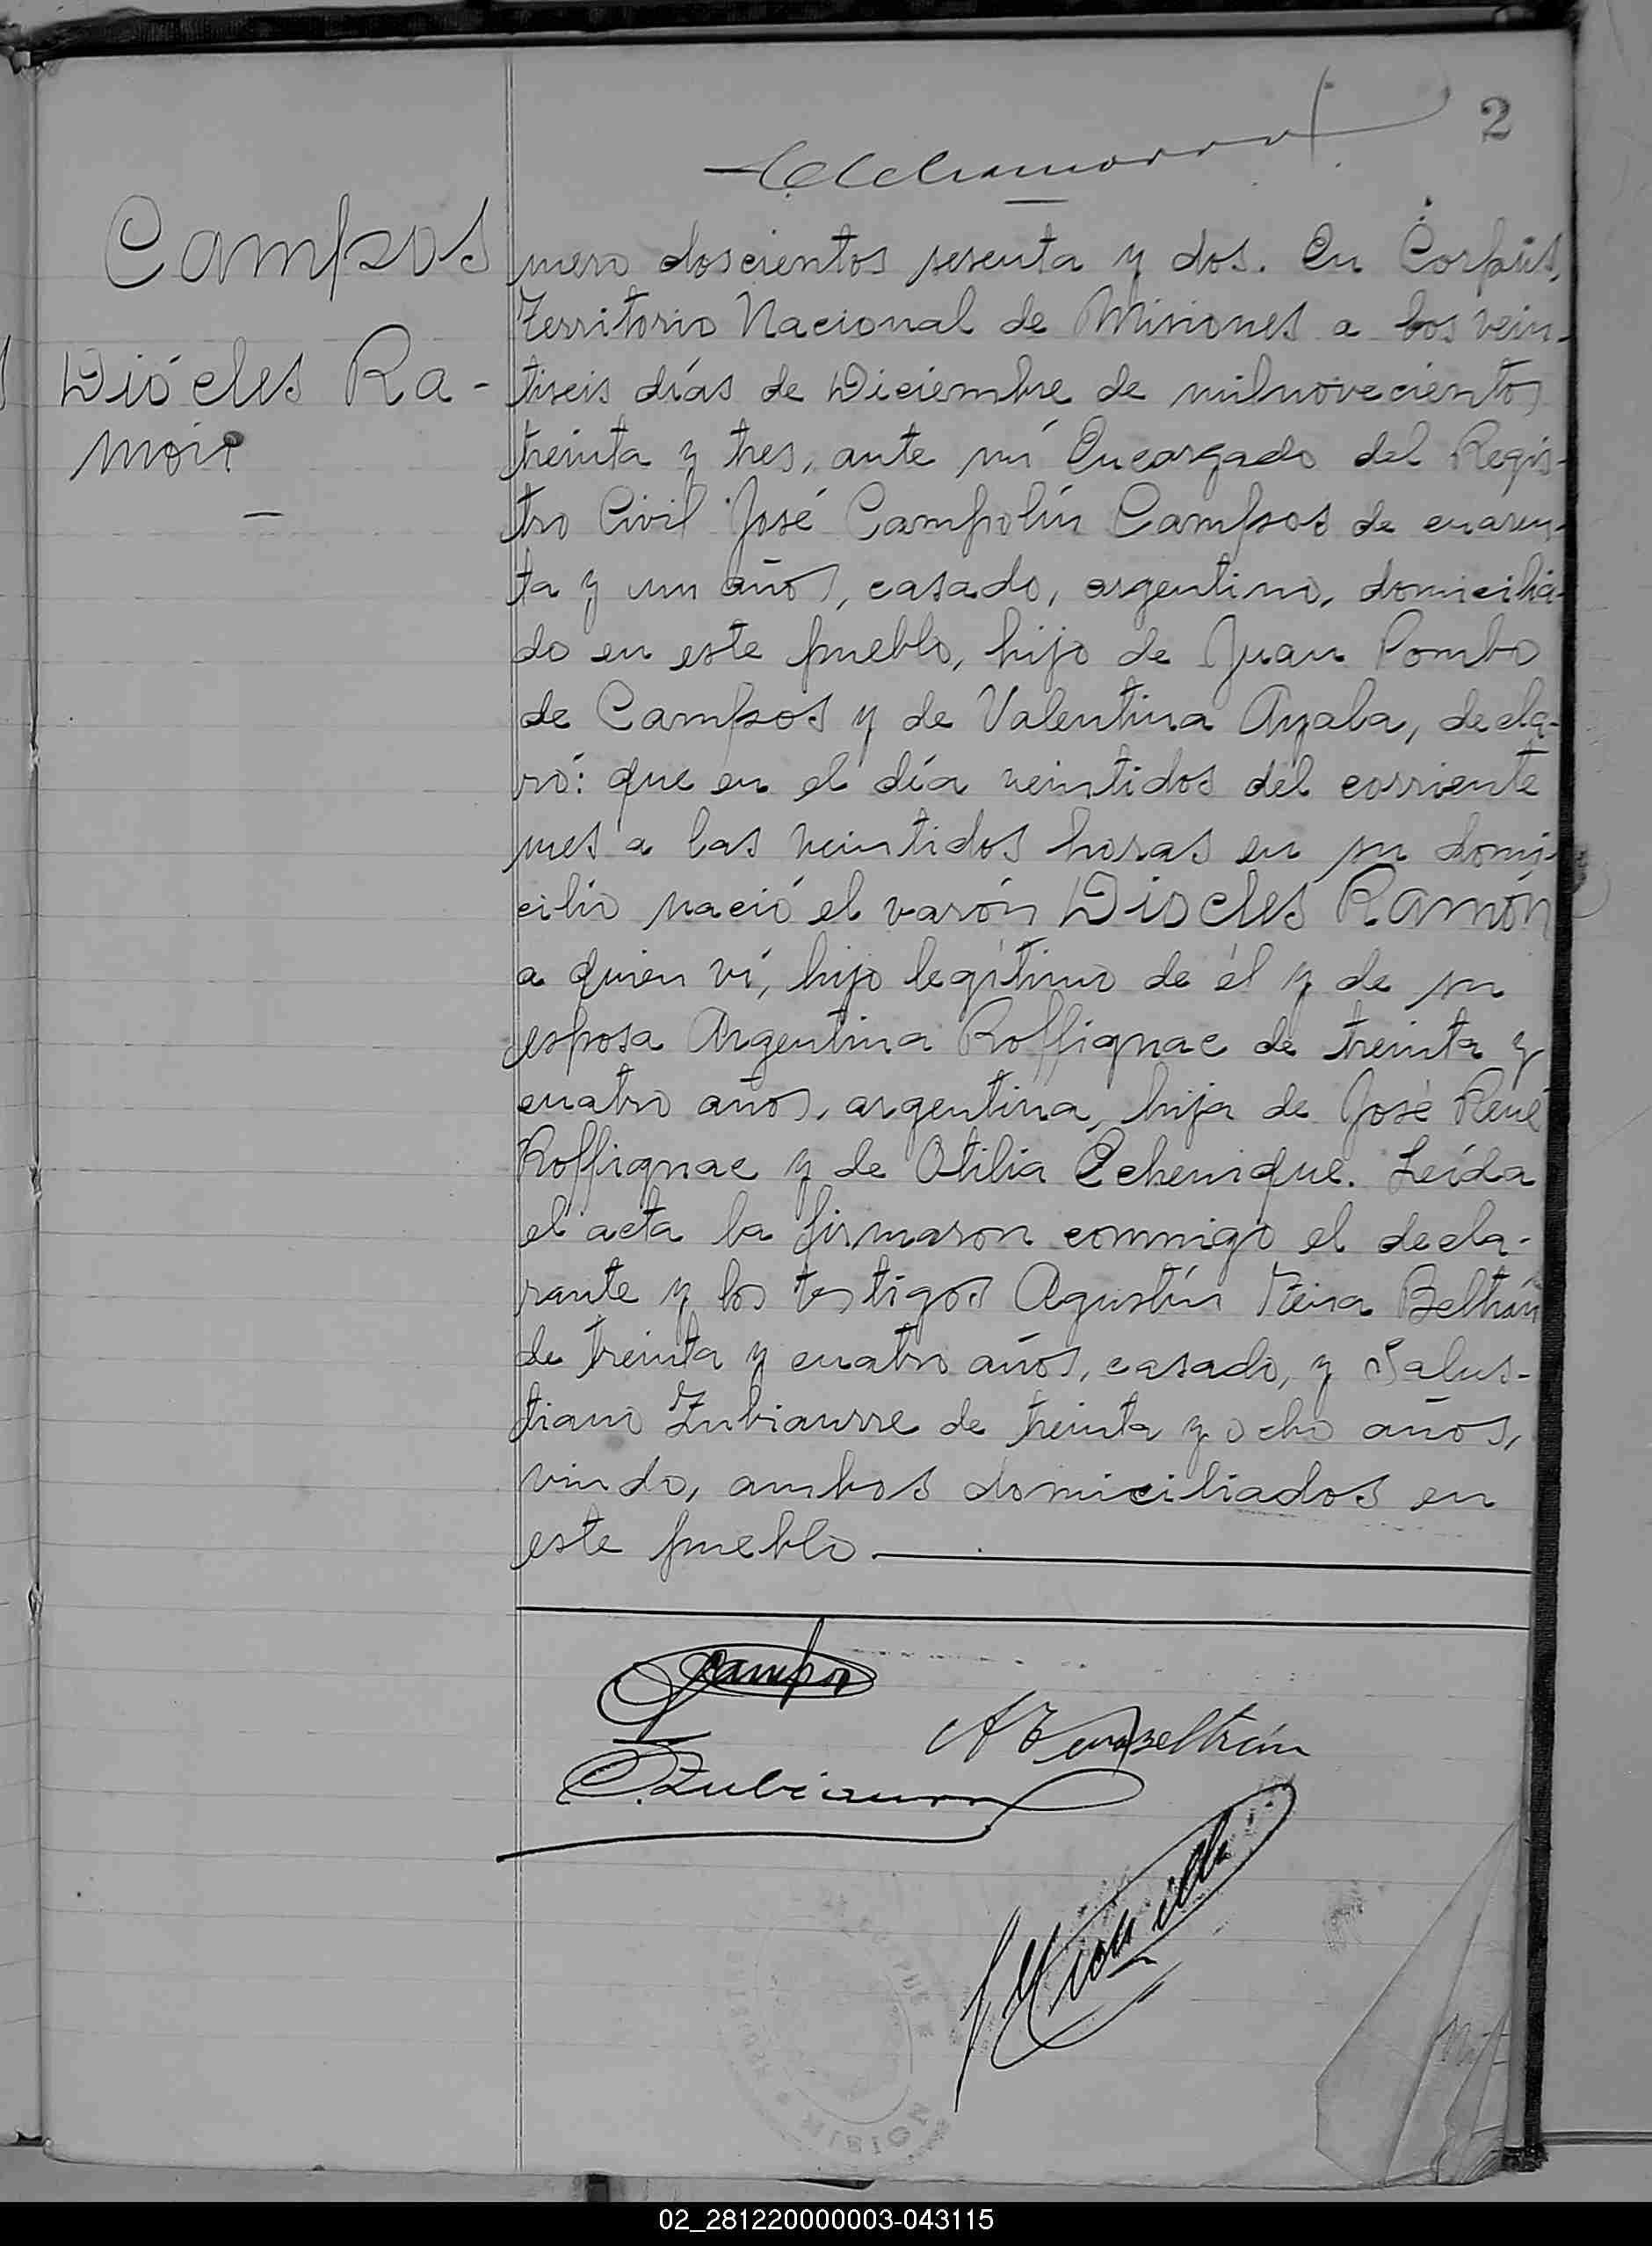 2
Campos
Diócles Ra-
món
mero doscientos sesenta y dos. En Corpus,
Territorio Nacional de Misiones a los vein-
tiseis días de Diciembre de milnovecientos
treinta y tres, ante mí Encargado del Regis-
tro Civil José Campolín Campos de cuaren-
ta y un años, casado, argentino, domicilia-
do en este pueblo, hijo de Juan Pombo
de Campos y de Valentina Ayala, decla-
ró: que en el día veintidos del corriente
mes a las veintidos horas en su domi-
cilio nació el varón Diocles Ramón
a quien ví, hijo legítimo de él y de su
esposa Argentina Roffignac de treinta y
cuatro años, argentina, hija de José René
Roffignac y de Otilia Echenique. Leída
el acta la firmaron conmigo el decla-
rante y los testigos Agustín Beltrán
de treinta y cuatro años, casado, y Salus-
tiano Zubiaurre de treinta y ocho años,
viudo, ambos domiciliados en
este pueblo
Campos
Beltrán
S. Zubiaurre
02_281220000003-043115